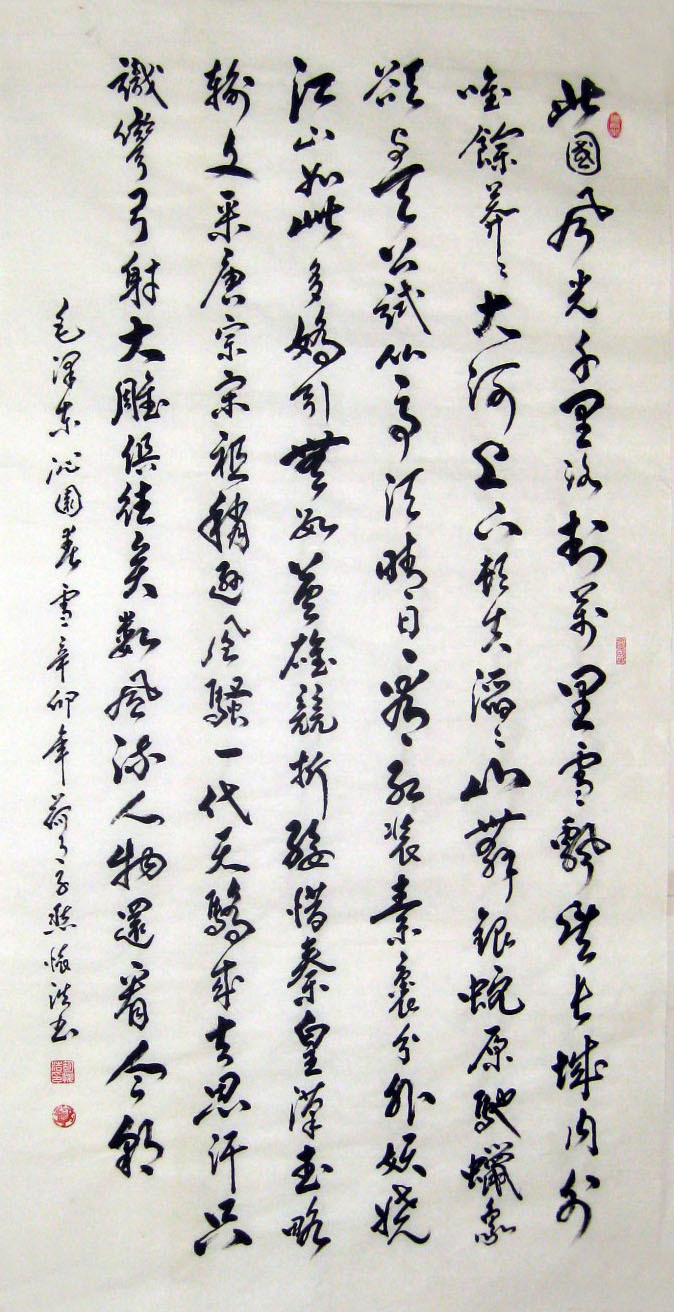 北國風光千里冰封萬里雪飄望長城内外
唯餘莽々大河上下頓失滔々山舞銀蛇原馳蠟象
欲与天公試比高須晴日看红装素裹分外妖嬈
江山如此多嬌引無數英雄競折腰惜秦皇漢武略
輸文采唐宗宋祖稍遜风騷一代天驕成吉思汗只
識彎弓射大雕俱往矣數風流人物還看今朝
毛泽东沁園春雪辛卯年荷月